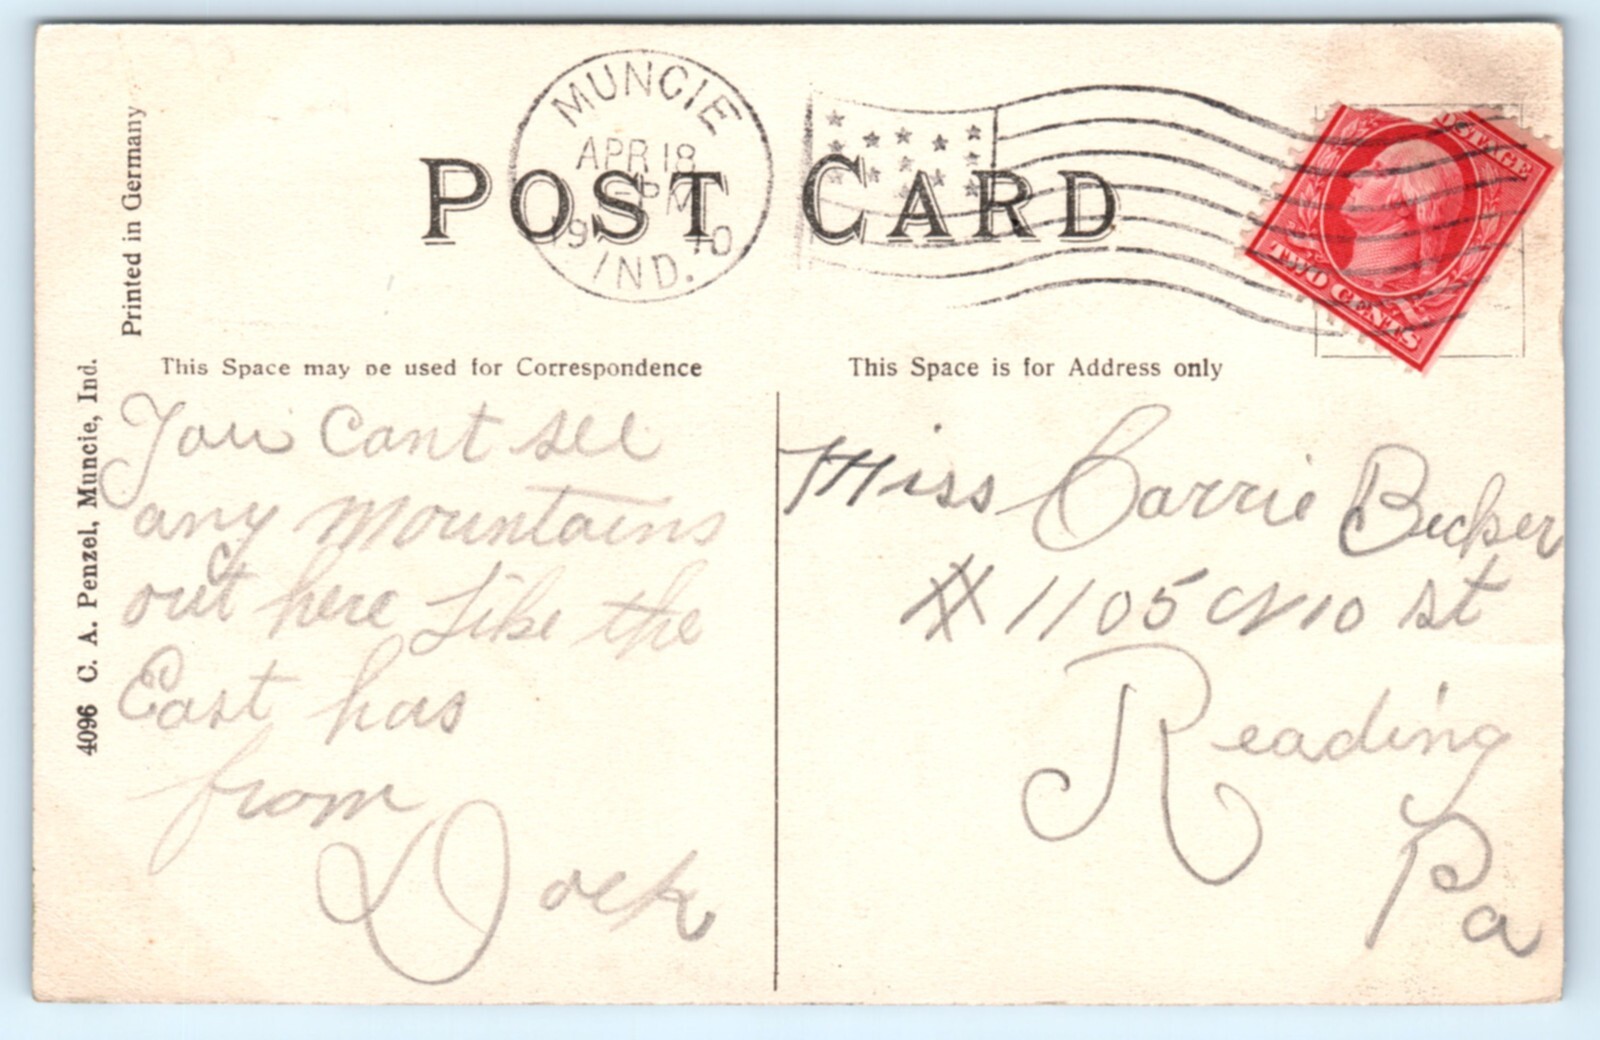 Printed in Germany
4096 C. A. Penzel, Muncie, Ind.
MUNCIE
APR 18
PM
1910
IND.
POST CARD
POSTAGE
TWO CENTS
This Space may be used for Correspondence
This Space is for Address only
You cant see
any mountains
out here Like the
East has
from
Dock
Miss Carrie Becker
# 1105 N 10 St
Reading
Pa